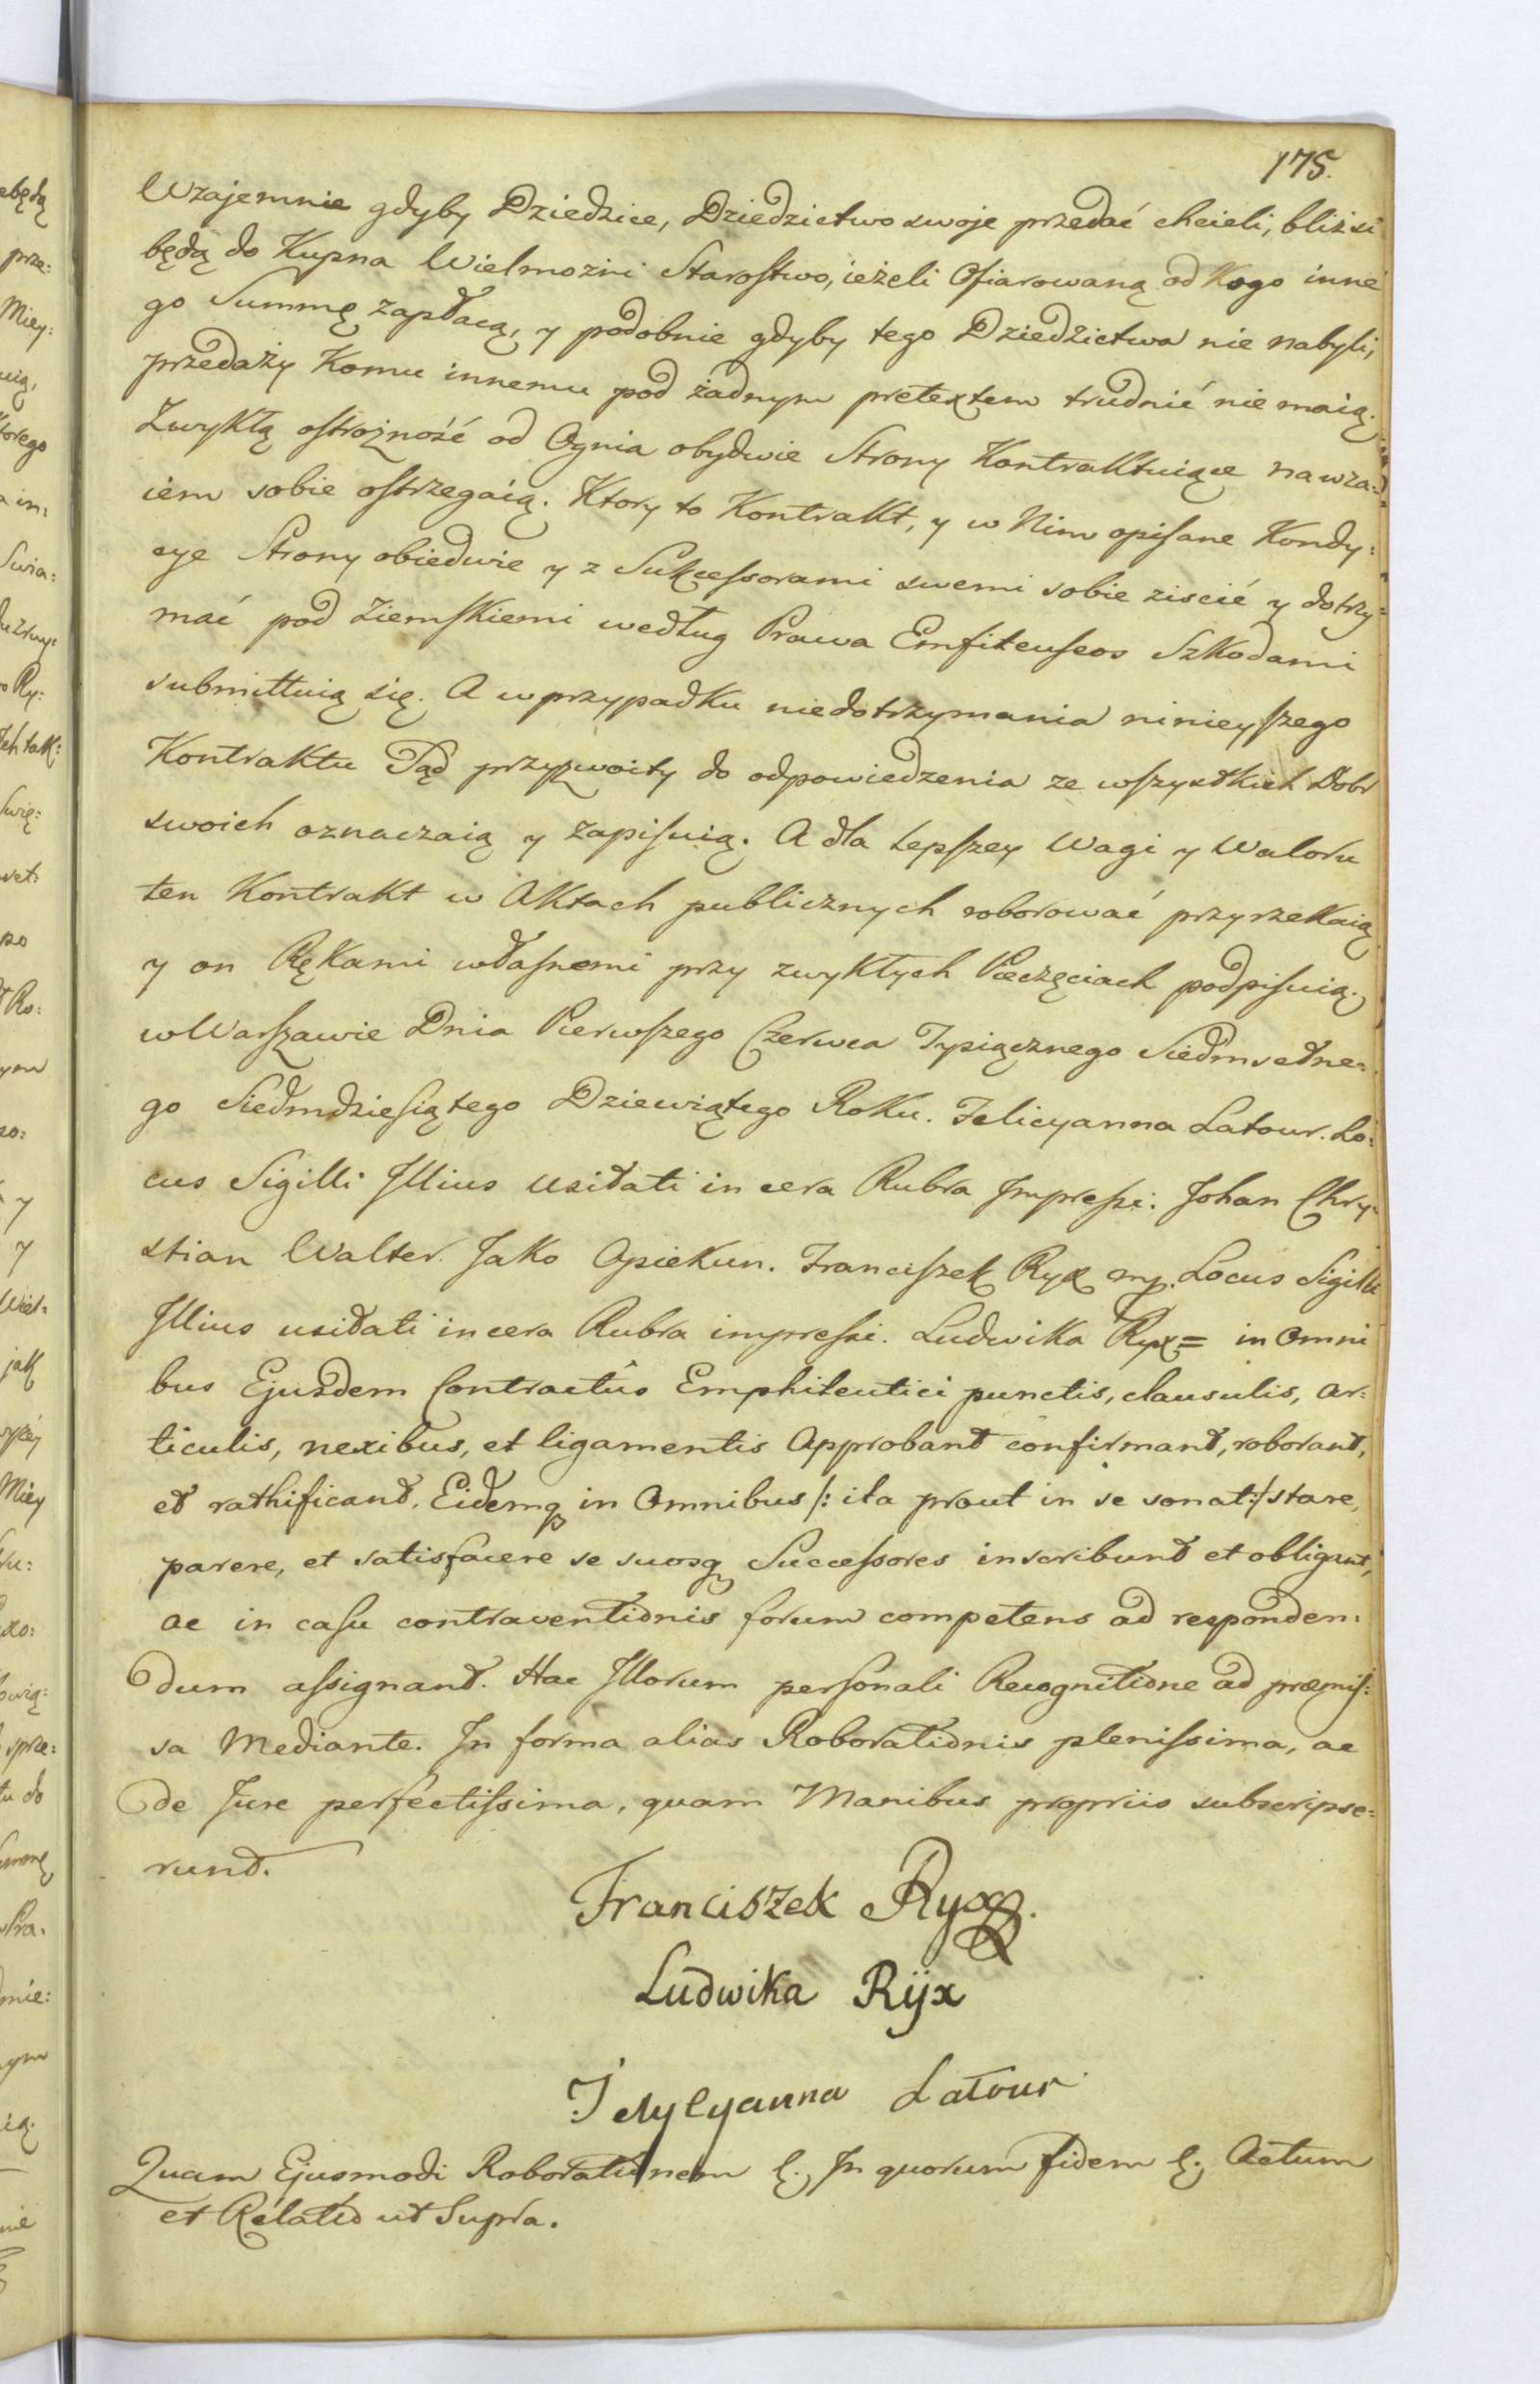 175.
Wzajemnie gdyby Dziedzice, Dziedzictwo swoje przedać chcieli, bliżsi
będą do Kupna Wielmozni Starostwo, ieżeli Ofiarowaną od Kogo inne
go Summę zapłacą, y podobnie gdyby tego Dziedzictwa nie nabyli,
przedaży Komu innemu pod żadnym pretextem trudnić nie maią.
Zwykłą ostrożność od Ognia obydwie Strony Kontraktuiące nawza=
iem sobie ostrzegaią. Ktory to Kontrakt, y w Nim opisane Kondy=
cye Strony obiedwie y z Sukcessorami swemi sobie ziscić y dotrzy=
mać pod Ziemskiemi według Prawa Emfiteuseos Szkodami
submittuią się. A w przypadku niedotrzymania ninieyszego
Kontraktu Sąd przyzwoity do odpowiedzenia ze wszystkich Dobr
swoich oznaczaią y zapisuią. A dla lepszey Wagi y Waloru
ten Kontrakt w Aktach publicznych roborować przyrzekaią
y on Rękami własnemi przy zwykłych Pieczęciach podpisuią.
w Warszawie Dnia Pierwszego Czerwca Tysiącznego Siedmsetne=
go Siedmdziesiątego Dziewiątego Roku. Felicyanna Latour. Lo=
cus Sigilli Illius usitati in cera Rubra Impressi. Johan Chry=
stian Walter. Jako Opiekun. Franciszek Ryx mp. Locus Sigilli
Illius usitati in cera Rubra impressi. Ludwika Ryx = in Omni
bus Ejusdem Contractûs Emphiteutici punctis, clausulis, ar=
ticulis, nexibus, et ligamentis Approbant confirmant, roborant,
et rathificant. Eidemq in Omnibus /: ita prout in se sonat :/ stare,
parere, et satisfacere se suosq Successores inscribunt et obligant,
ac in casu contraventionis forum competens ad responden=
dum assignant. Hac Illorum personali Recognitione ad præmis=
sa Mediante. In forma alias Roborationis plenissima, ac
de Jure perfectissima, quam Manibus propriis subscripse=
runt.
Franciszek Ryx
Ludwika Rÿx
Latour
Quam Ejusmodi Roborationem &. In quorum fidem &. Actum
et Relatio ut Supra.